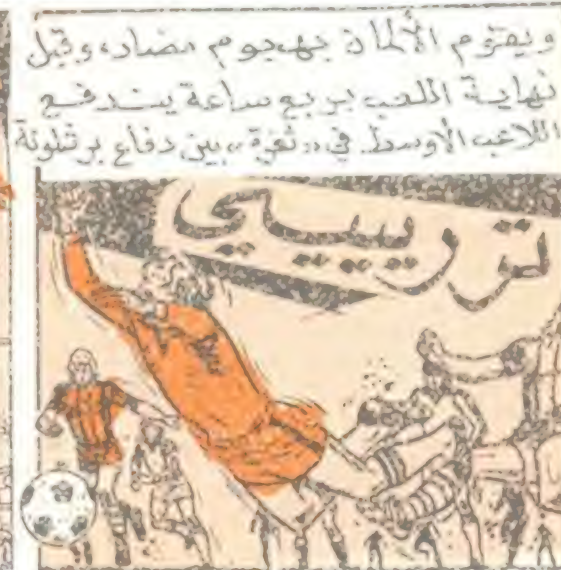 ويقوم الألمان بهجوم مضاد، وقبل
نهاية اللعب بربع ساعة يندفع
اللاعب الأوسط في «ثغرة» بين دفاع برشلونة
تررييييي